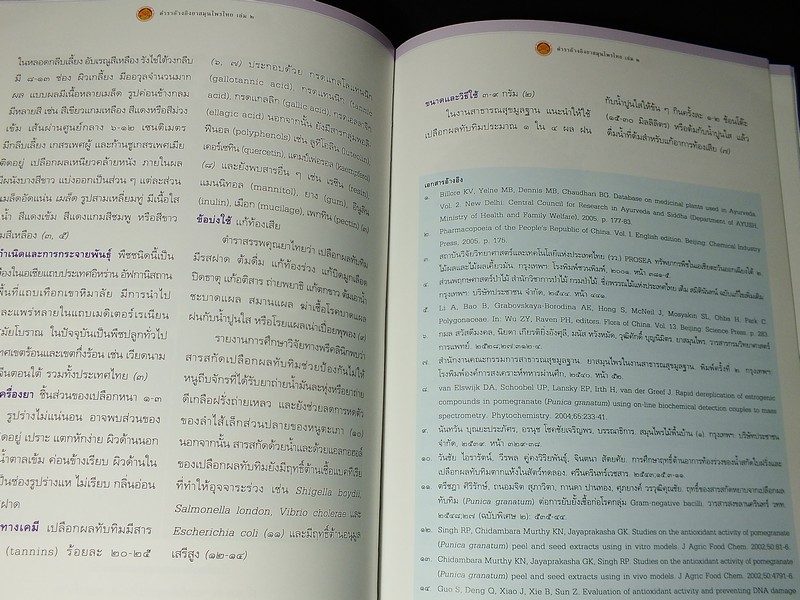 ตำราอ้างอิงยาสมุนไพรไทย เล่ม ๒
ในหลอดกลีบเลี้ยง อับเรณูสีเหลือง รังไข่ใต้วงกลีบ
มี ๘-๑๓ ช่อง ผิวเกลี้ยง มีออวุลจำนวนมาก
ผล แบบผลมีเนื้อหลายเมล็ด รูปค่อนข้างกลม
มีหลายสี เช่น สีเขียวแกมเหลือง สีแดงหรือสีม่วง
เข้ม เส้นผ่านศูนย์กลาง ๖-๑๒ เซนติเมตร
มีกลีบเลี้ยง เกสรเพศผู้ และก้านชูเกสรเพศเมีย
ติดอยู่ เปลือกผลเหนียวคล้ายหนัง ภายในผล
มีผนังบางสีขาว แบ่งออกเป็นส่วน ๆ แต่ละส่วน
เมล็ดอัดแน่น เมล็ด รูปสามเหลี่ยมทู่ มีเนื้อใส
น้ำ สีแดงเข้ม สีแดงแกมสีชมพู หรือสีขาว
มสีเหลือง (๓, ๕)
กำเนิดและการกระจายพันธุ์ พืชชนิดนี้เป็น
ของในเอเชียแถบประเทศอิหร่าน อัฟกานิสถาน
พื้นที่แถบเทือกเขาหิมาลัย มีการนำไป
และแพร่หลายในแถบเมดิเตอร์เรเนียน
มัยโบราณ ในปัจจุบันเป็นพืชปลูกทั่วไป
ทศเขตร้อนและเขตกึ่งร้อน เช่น เวียดนาม
จีนตอนใต้ รวมทั้งประเทศไทย (๓)
ครื่องยา ชิ้นส่วนของเปลือกหนา ๑-๓
รูปร่างไม่แน่นอน อาจพบส่วนของ
ดอยู่ เปราะ แตกหักง่าย ผิวด้านนอก
น้ำตาลเข้ม ค่อนข้างเรียบ ผิวด้านใน
เป็นช่องรูปร่างแห ไม่เรียบ กลิ่นอ่อน
ฝาด
ทางเคมี เปลือกผลทับทิมมีสาร
(tannins) ร้อยละ ๒๐-๒๕
(๑, ๗) ประกอบด้วย กรดแกลโลแทนนิก
(gallotannic acid), กรดแทนนิก (tannic
acid), กรดแกลลิก (gallic acid), กรดเอลลาจิก
(ellagic acid) นอกจากนั้น ยังมีสารกลุ่มพอลิ
ฟีนอล (polyphenols) เช่น ลูทีโอลิน (luteolin),
เคอร์เซทิน (quercetin), แคมป์เฟอรอล (kaempferol)
(๘) และยังพบสารอื่น ๆ เช่น เรซิน (resin),
แมนนิทอล (mannitol), ยาง (gum), อินูลิน
(inulin), เมือก (mucilage), เพกทิน (pectin) (๙)
ข้อบ่งใช้ แก้ท้องเสีย
ตำราสรรพคุณยาไทยว่า เปลือกผลทับทิม
มีรสฝาด ต้มดื่ม แก้ท้องร่วง แก้บิดมูกเลือด
ปิดธาตุ แก้อติสาร ถ่ายพยาธิ แก้ตกขาว ต้มเอาน้ำ
ชะบาดแผล สมานแผล ฆ่าเชื้อโรคบาดแผล
ฝนกับน้ำปูนใส หรือโรยแผลเน่าเปื่อยพุพอง (๑)
รายงานการศึกษาวิจัยทางพรีคลินิกพบว่า
สารสกัดเปลือกผลทับทิมช่วยป้องกันไม่ให้
หนูถีบจักรที่ได้รับยาถ่ายน้ำมันละหุ่งหรือยาถ่าย
ดีเกลือฝรั่งถ่ายเหลว และยังช่วยลดการหดตัว
ของลำไส้เล็กส่วนปลายของหนูตะเภา (๑๐)
นอกจากนั้น สารสกัดด้วยน้ำและด้วยแอลกอฮอล์
ของเปลือกผลทับทิมยังมีฤทธิ์ต้านเชื้อแบคทีเรีย
ที่ทำให้อุจจาระร่วง เช่น Shigella boydii,
Salmonella london, Vibrio cholerae และ
Escherichia coli (๑๑) และมีฤทธิ์ต้านอนุมูล
เสรีสูง (๑๒-๑๔)
ตำราอ้างอิงยาสมุนไพรไทย เล่ม ๒
ขนาดและวิธีใช้ ๓-๙ กรัม (๒)
ในงานสาธารณสุขมูลฐาน แนะนำให้ใช้
เปลือกผลทับทิมประมาณ ๑ ใน ๔ ผล ฝน
กับน้ำปูนใสให้ข้น ๆ กินครั้งละ ๑-๒ ช้อนโต๊ะ
(๑๕-๓๐ มิลลิลิตร) หรือต้มกับน้ำปูนใส แล้ว
ดื่มน้ำที่ต้มสำหรับแก้อาการท้องเสีย (๗)
เอกสารอ้างอิง
๑. Billore KV, Yelne MB, Dennis MB, Chaudhari BG. Database on medicinal plants used in Ayurveda.
Vol. 2. New Delhi: Central Council for Research in Ayurveda and Siddha (Department of AYUSH),
Ministry of Health and Family Welfare), 2005. p. 177-83.
๒. Pharmacopoeia of the People's Republic of China. Vol. I. English edition. Beijing: Chemical Industry
Press, 2005. p. 175.
๓. สถาบันวิจัยวิทยาศาสตร์และเทคโนโลยีแห่งประเทศไทย (วว.) PROSEA ทรัพยากรพืชในเอเชียตะวันออกเฉียงใต้ ๒
ไม้ผลและไม้ผลเคี้ยวมัน. กรุงเทพฯ: โรงพิมพ์ชวนพิมพ์, ๒๐๐๑. หน้า ๓๘๑-๕
๔. ส่วนพฤกษศาสตร์ป่าไม้ สำนักวิชาการป่าไม้ กรมป่าไม้. ชื่อพรรณไม้แห่งประเทศไทย เต็ม สมิตินันทน์ ฉบับแก้ไขเพิ่มเติม.
กรุงเทพฯ: บริษัทประชาชน จำกัด, ๒๕๔๔. หน้า ๔๔๑.
๕. Li A, Bao B, Grabovskaya-Borodina AE, Hong S, McNeil J, Mosyakin SL, Ohba H, Park C.
Polygonaceae. In: Wu ZY, Raven PH, editors. Flora of China. Vol. 13. Beijing: Science Press. p. 283.
๖. กมล สวัสดีมงคล, นิยดา เกียรติยิ่งอังศุลี, มนัส หวังหมัด, วุฒิศักดิ์ บุญนิมิตร. ยาสมุนไพร. วารสารกรมวิทยาศาสตร์
การแพทย์. ๒๕๒๘;๒๗:๓๑๒-๔.
๗. สำนักงานคณะกรรมการสาธารณสุขมูลฐาน. ยาสมุนไพรในงานสาธารณสุขมูลฐาน. พิมพ์ครั้งที่ ๒. กรุงเทพฯ:
โรงพิมพ์องค์การสงเคราะห์ทหารผ่านศึก; ๒๕๔๐. หน้า ๕๒.
๘. van Elswijk DA, Schoobel UP, Lansky EP, Irth H, van der Greef J. Rapid dereplication of estrogenic
compounds in pomegranate (Punica granatum) using on-line biochemical detection coupled to mass
spectrometry. Phytochemistry. 2004;65:233-41.
๙. นันทวัน บุณยะประภัศร, อรนุช โชคชัยเจริญพร, บรรณาธิการ. สมุนไพรไม้พื้นบ้าน (๑). กรุงเทพฯ: บริษัทประชาชน
จำกัด, ๒๕๓๙. หน้า ๓๒๙-๓๘.
๑๐. วันชัย โอรารัตน์, วีรพล คู่คงวิริยพันธุ์, จินตนา สัตยศัย. การศึกษาฤทธิ์ต้านอาการท้องร่วงของน้ำสกัดใบฝรั่งและ
เปลือกผลทับทิมตากแห้งในสัตว์ทดลอง. ศรีนครินทร์เวชสาร. ๒๕๔๓;๑๕:๓-๑๑.
๑๑. ตรีชฎา ศิริรักษ์, ถนอมจิต สุภาวิตา, กานดา ปานทอง, ศุภยางค์ วรวุฒิคุณชัย. ฤทธิ์ของสารสกัดหยาบจากเปลือกผล
ทับทิม (Punica granatum) ต่อการยับยั้งเชื้อก่อโรคกลุ่ม Gram-negative bacilli. วารสารสงขลานครินทร์ วทท.
๒๕๔๘;๒๗ (ฉบับพิเศษ ๒): ๕๓๕-๔๔.
๑๒. Singh RP, Chidambara Murthy KN, Jayaprakasha GK. Studies on the antioxidant activity of pomegranate
(Punica granatum) peel and seed extracts using in vitro models. J Agric Food Chem. 2002;50:81-6.
๑๓. Chidambara Murthy KN, Jayaprakasha GK, Singh RP. Studies on the antioxidant activity of pomegranate
(Punica granatum) peel and seed extracts using in vivo models. J Agric Food Chem. 2002;50:4791-5.
๑๔. Guo S, Deng Q, Xiao J, Xie B, Sun Z. Evaluation of antioxidant activity and preventing DNA damage